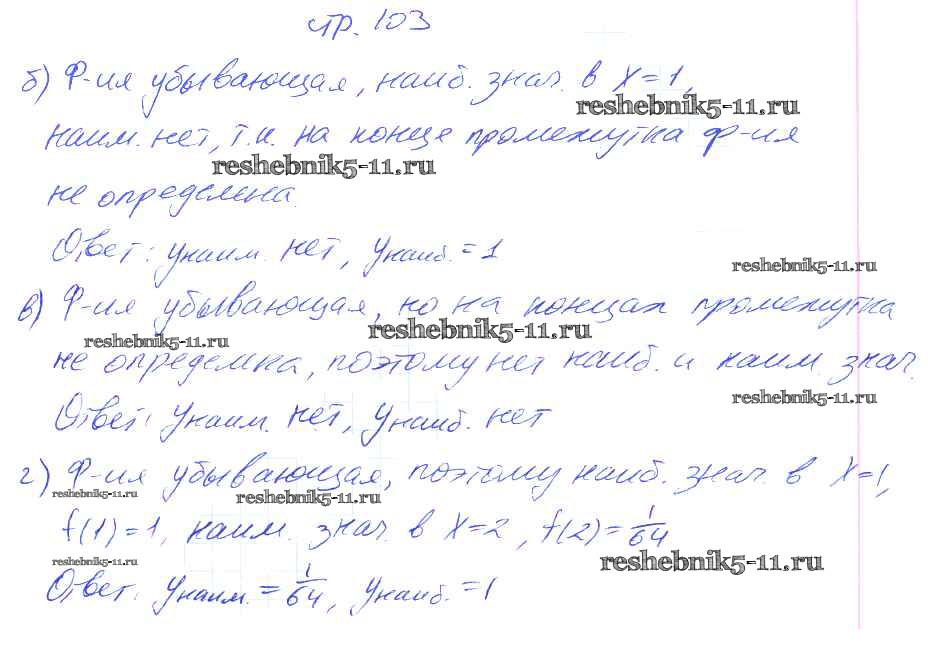 стр. 103
б) Ф-ия убывающая, наиб. знач. в x=1,
reshebnik5-11.ru
наим. нет, т.к. на конце промежутка ф-ия
reshebnik5-11.ru
не определена.
Ответ: yнаим. нет, yнаиб.=1
reshebnik5-11.ru
в) Ф-ия убывающая, но на концах промежутка
reshebnik5-11.ru reshebnik5-11.ru
не определена, поэтому нет наиб. и наим. знач.
reshebnik5-11.ru
Ответ: yнаим. нет, yнаиб. нет
г) Ф-ия убывающая, поэтому наиб. знач. в x=1,
reshebnik5-11.ru reshebnik5-11.ru
f(1)=1, наим. знач. в x=2, f(2)=1/64
reshebnik5-11.ru reshebnik5-11.ru
Ответ: yнаим.=1/64, yнаиб.=1